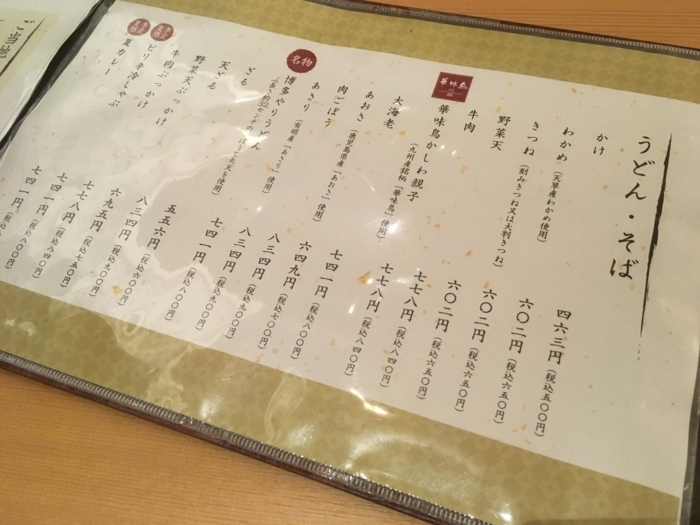 うどん・そば
かけ 四六三円(税込五〇〇円)
わかめ(天草産わかめ使用) 六〇二円(税込六五〇円)
きつね(刻みきつね又は大判きつね) 六〇二円(税込六五〇円)
野菜天 六〇二円(税込六五〇円)
牛肉 七七八円(税込八四〇円)
華味鳥
華味鳥かしわ親子(九州産銘柄「華味鳥」使用) 七七八円(税込八四〇円)
大海老 七四一円(税込八〇〇円)
あおさ(鹿児島県産「あおさ」使用) 六四九円(税込七〇〇円)
肉ごぼう 八三四円(税込九〇〇円)
あさり(有明産「あさり」使用) 八三四円(税込九〇〇円)
名物
博多やりうどん 七四一円(税込八〇〇円)
ざる 五五六円(税込六〇〇円)
天ざる 八三四円
野菜天ぶっかけ 六九五円(税込七五〇円)
牛肉ぶっかけ 七七八円
ピリ辛冷しゃぶ 七四一円(税込八〇〇円)
夏カレー 七四一円(税込八〇〇円)
ご当地